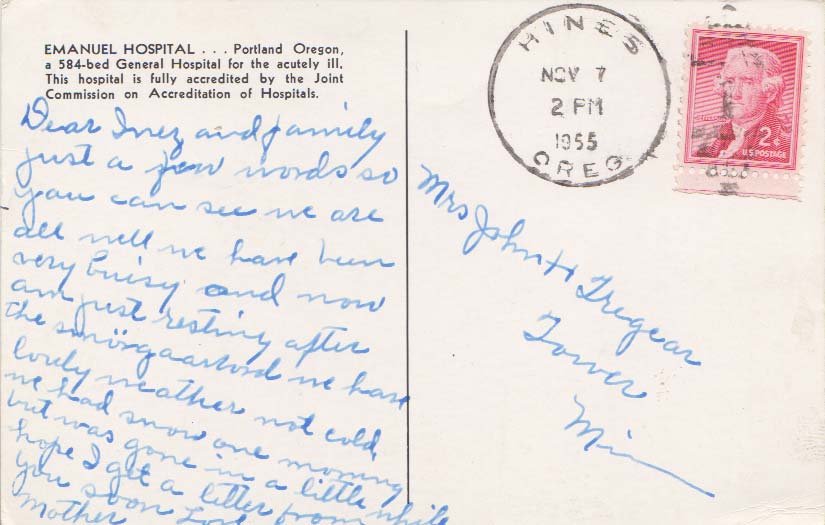 EMANUEL HOSPITAL . . . Portland Oregon,
a 584-bed General Hospital for the acutely ill.
This hospital is fully accredited by the Joint
Commission on Accreditation of Hospitals.
Dear Inez and family
just a few words so
you can see we are
all well we have been
very buisy and now
am just resting after
the smösgaarbord we have
lovely weather not cold,
we had snow one morning
but was gone in a little while
hope I get a letter from
you soon Love
Mother
HINES
NOV 7
2 PM
1955
OREG
2¢
U.S. POSTAGE
Mrs John H Tregear
Tower
Min